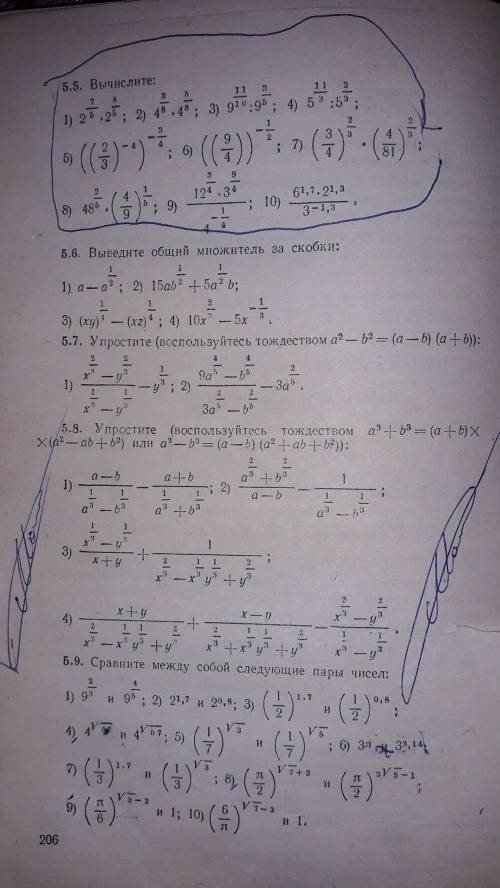 5.5. Вычислите:
1) 2^(7/5) · 2^(8/5); 2) 4^(3/8) · 4^(5/8); 3) 9^(11/10) : 9^(3/5); 4) 5^(11/3) : 5^(2/3);
5) ((2/3)^(-4))^(-3/4); 6) ((9/4))^(-1/2); 7) (3/4)^(2/3) · (4/81)^(2/3);
8) 48^(2/5) · (4/9)^(1/5); 9) (12^(3/4) · 3^(9/4)) / 4^(-1/4); 10) (6^(1,7) · 2^(1,3)) / 3^(-1,3).
5.6. Выведите общий множитель за скобки:
1) a — a^(1/2); 2) 15ab^(1/2) + 5a^(1/2) b;
3) (xy)^(1/4) — (xz)^(1/4); 4) 10x^(2/3) — 5x^(-1/3).
5.7. Упростите (воспользуйтесь тождеством a² — b² = (a — b) (a + b)):
1) (x^(2/3) — y^(2/3)) / (x^(1/3) — y^(1/3)) — y^(1/3); 2) (9a^(4/5) — b^(4/5)) / (3a^(2/5) — b^(2/5)) — 3a^(2/5).
5.8. Упростите (воспользуйтесь тождеством a³ + b³ = (a + b) ×
× (a² — ab + b²) или a³ — b³ = (a — b) (a² + ab + b²)):
1) (a — b) / (a^(1/3) — b^(1/3)) — (a + b) / (a^(1/3) + b^(1/3)); 2) (a^(2/3) + b^(2/3)) / (a — b) — 1 / (a^(1/3) — b^(1/3));
3) (x^(1/3) — y^(1/3)) / (x + y) + 1 / (x^(2/3) — x^(1/3) y^(1/3) + y^(2/3));
4) (x + y) / (x^(2/3) — x^(1/3) y^(1/3) + y^(2/3)) + (x — y) / (x^(2/3) + x^(1/3) y^(1/3) + y^(2/3)) — (x^(2/3) — y^(2/3)) / (x^(1/3) — y^(1/3)).
5.9. Сравните между собой следующие пары чисел:
1) 9^(2/3) и 9^(4/5); 2) 2^(1,7) и 2^(0,8); 3) (1/2)^(1,7) и (1/2)^(0,8);
4) и 4^(√57); 5) (1/7)^(√3) и (1/7)^(√5); 6) 3^π и 3^(3,14);
7) (1/3)^(1,7) и (1/3)^(√3); 8) (π/2)^(√7+2) и (π/2)^(3√8−1);
9) (π/6)^(√8−2) и 1; 10) (6/π)^(√7−3) и 1.
206